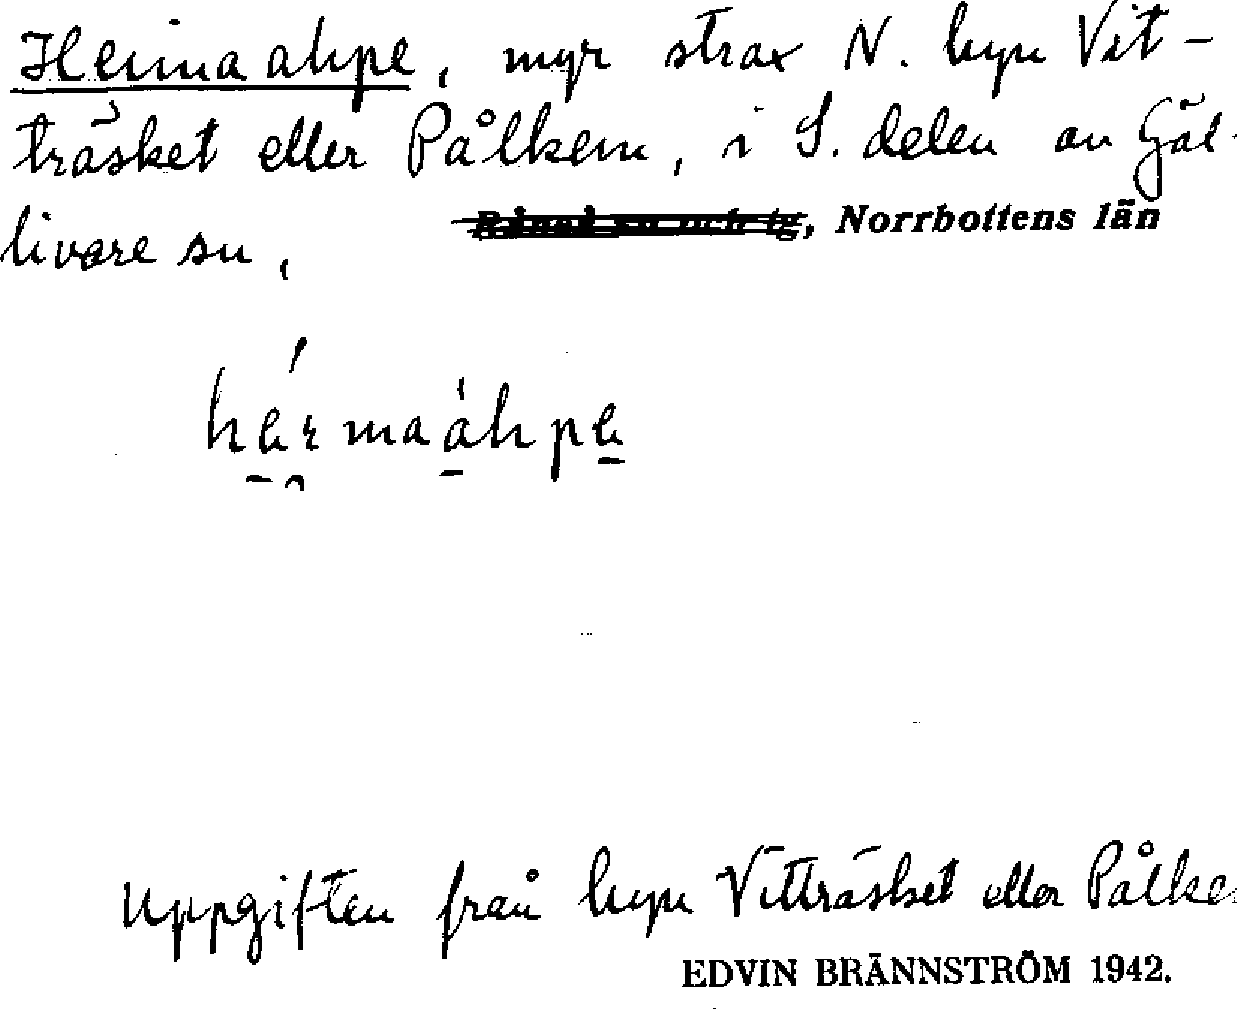 Heimaahpe, myr strax N. byn Vit-
träsket eller Pålkem, i S. delen av Gäl-
livare sn, Norrbottens län
Uppgiften från byn Vitträsket eller Pålke
EDVIN BRÄNNSTRÖM 1942.